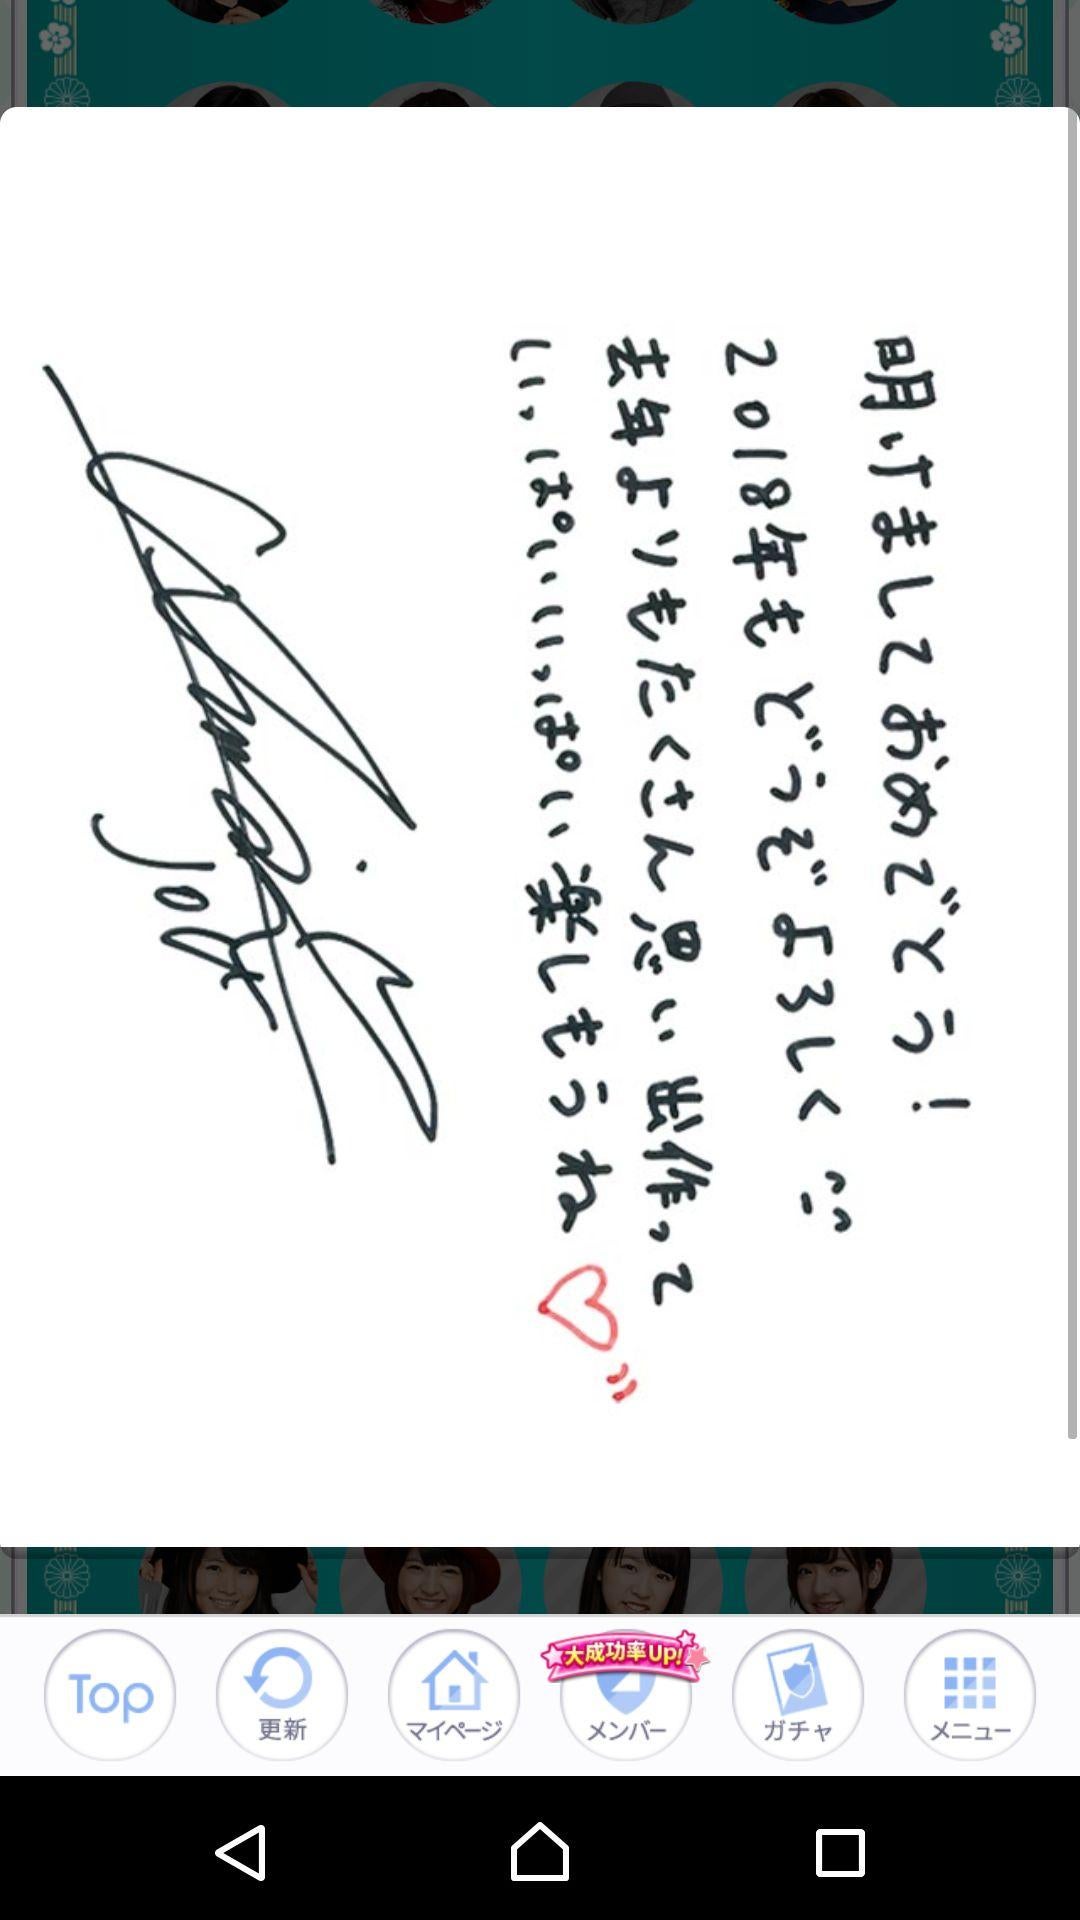 明けましておめでとう!
2018年もどうぞよろしく
去年よりもたくさん思い出作って
いっぱいいいっぱい楽しもうね♡
Top
更新
マイページ
大成功率Up!
メンバー
ガチャ
メニュー